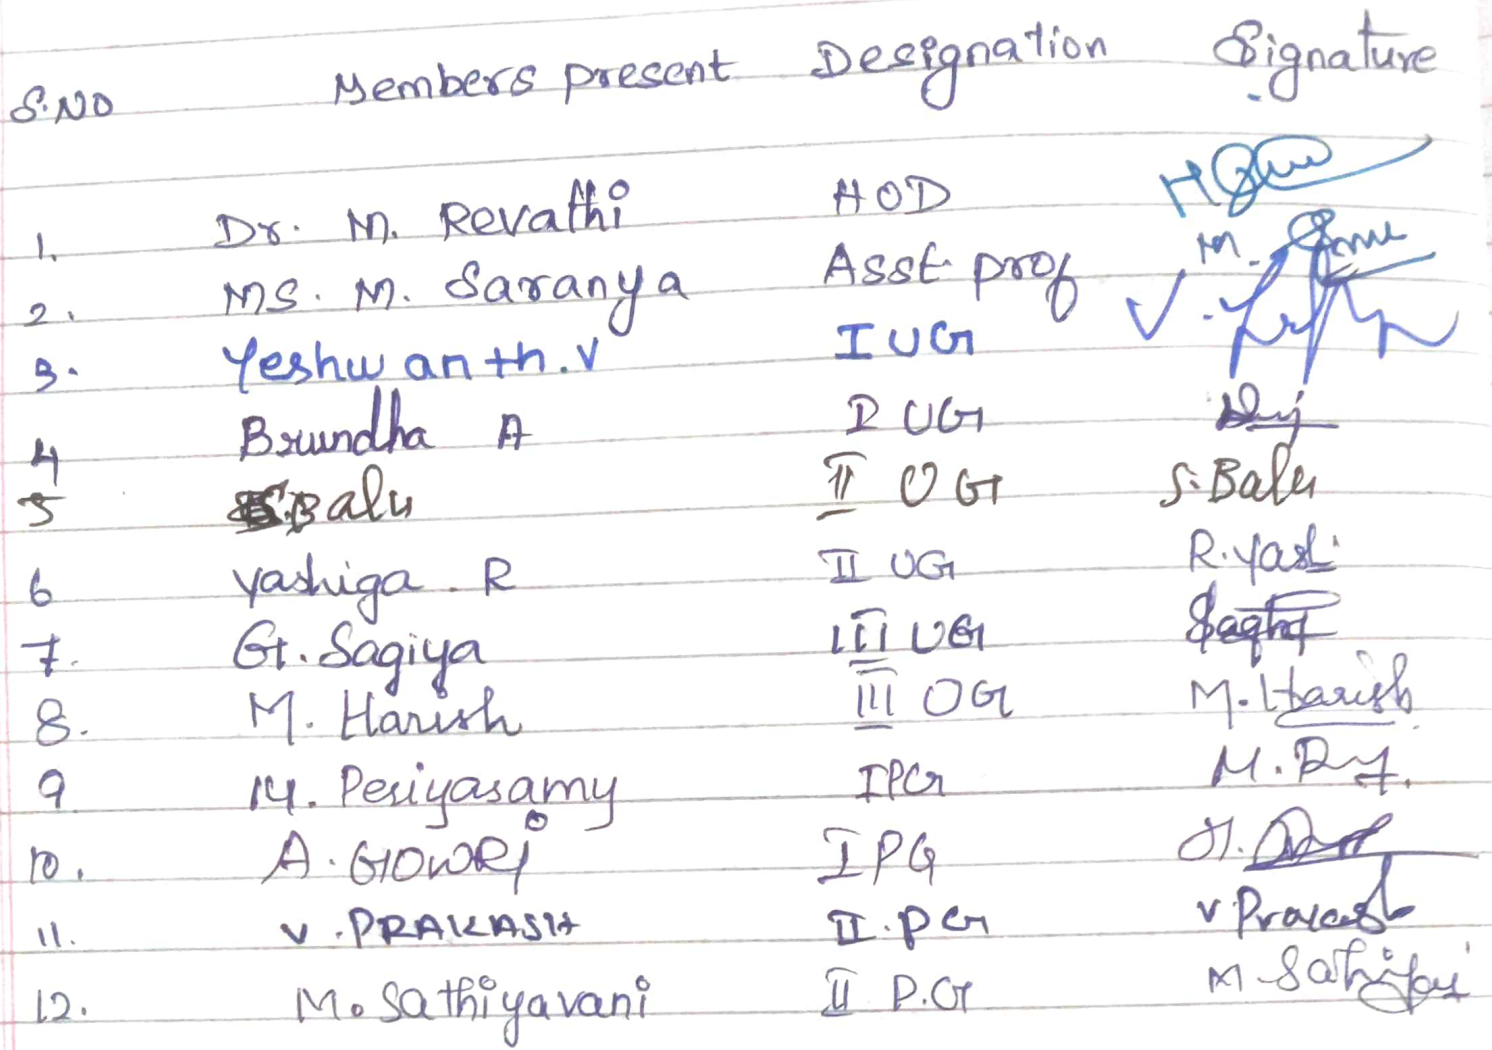 S.NO Members present Designation Signature
1. Dr. M. Revathi HOD
2. MS. M. Saranya Asst prof M.
3. Yeshwanth.V I UG V.
4 Brundha A I UG
5 S.Balu II UG S.Balu
6 Yashiga . R II UG R.Yashi
7. G. Sagiya III UG
8. M. Harish III UG M.Harish
9 M. Periyasamy I PG M.
10. A. GOWRi I PG
11. V. PRAKASH II. PG V Prakash
12. M. Sathiyavani II P.G M